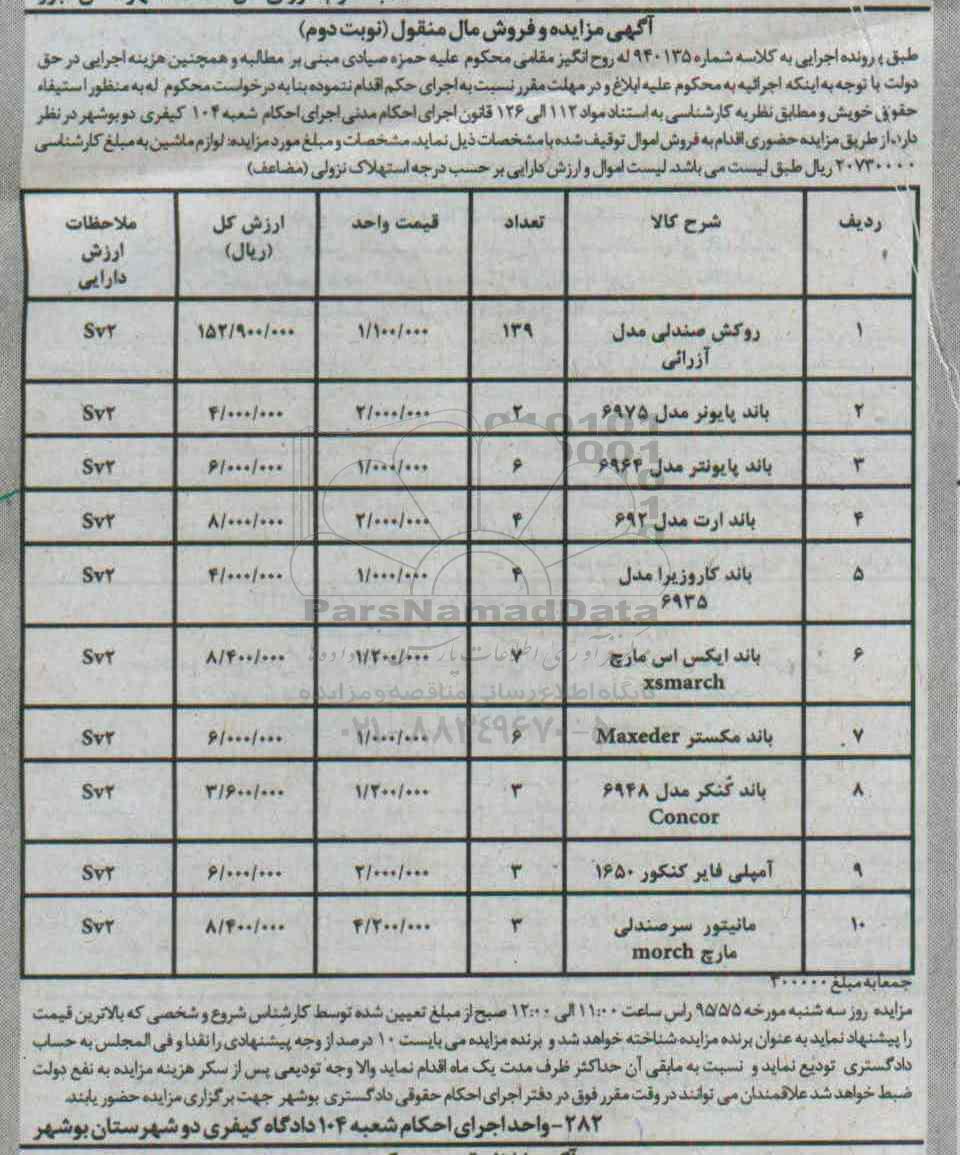 آگهی مزایده و فروش مال منقول (نوبت دوم)
طبق پرونده اجرایی به کلاسه شماره ۹۴۰۱۳۵ له روح انگیز مقامی محکوم علیه حمزه صیادی مبنی بر مطالبه و همچنین هزینه اجرایی در حق
دولت با توجه به اینکه اجرائیه به محکوم علیه ابلاغ و در مهلت مقرر نسبت به اجرای حکم اقدام ننموده بنا به درخواست محکوم له به منظور استیفاء
حقوق خویش و مطابق نظریه کارشناسی به استناد مواد ۱۱۲ الی ۱۲۶ قانون اجرای احکام مدنی اجرای احکام شعبه ۱۰۴ کیفری دو بوشهر در نظر
دارد، از طریق مزایده حضوری اقدام به فروش اموال توقیف شده با مشخصات ذیل نماید. مشخصات و مبلغ مورد مزایده: لوازم ماشین به مبلغ کارشناسی
۲۰۷۳۰۰۰۰ ریال طبق لیست می باشد. لیست اموال و ارزش دارایی بر حسب درجه استهلاک نزولی (مضاعف)
ردیف شرح کالا تعداد قیمت واحد ارزش کل ملاحظات
(ریال) ارزش
دارایی
۱ روکش صندلی مدل ۱۳۹ ۱/۱۰۰/۰۰۰ ۱۵۲/۹۰۰/۰۰۰ Sv۲
آزرائی
۲ باند پایونر مدل ۶۹۷۵ ۲ ۲/۰۰۰/۰۰۰ ۴/۰۰۰/۰۰۰ Sv۲
۳ باند پایونتر مدل ۶۹۶۴ ۶ ۱/۰۰۰/۰۰۰ ۶/۰۰۰/۰۰۰ Sv۲
۴ باند ارت مدل ۶۹۲ ۴ ۲/۰۰۰/۰۰۰ ۸/۰۰۰/۰۰۰ Sv۲
۵ باند کاروزیرا مدل ۴ ۱/۰۰۰/۰۰۰ ۴/۰۰۰/۰۰۰ Sv۲
۶۹۳۵
ParsNamadData
۶ باند ایکس اس مارچ ۷ ۱/۲۰۰/۰۰۰ ۸/۴۰۰/۰۰۰ Sv۲
xsmarch
پایگاه اطلاع رسانی مناقصه و مزایده
۰۲۱-۸۸۳۴۹۶۷۰-۵
۷ باند مکستر Maxeder ۶ ۱/۰۰۰/۰۰۰ ۶/۰۰۰/۰۰۰ Sv۲
۸ باند کُنکر مدل ۶۹۴۸ ۳ ۱/۲۰۰/۰۰۰ ۳/۶۰۰/۰۰۰ Sv۲
Concor
۹ آمپلی فایر کنکور ۱۶۵۰ ۳ ۲/۰۰۰/۰۰۰ ۶/۰۰۰/۰۰۰ Sv۲
۱۰ مانیتور سرصندلی ۳ ۴/۲۰۰/۰۰۰ ۸/۴۰۰/۰۰۰ Sv۲
مارچ morch
جمعا به مبلغ ۳۰۰۰۰۰
مزایده روز سه شنبه مورخه ۹۵/۵/۵ راس ساعت ۱۱:۰۰ الی ۱۲:۰۰ صبح از مبلغ تعیین شده توسط کارشناس شروع و شخصی که بالاترین قیمت
را پیشنهاد نماید به عنوان برنده مزایده شناخته خواهد شد و برنده مزایده می بایست ۱۰ درصد از وجه پیشنهادی را نقدا و فی المجلس به حساب
دادگستری تودیع نماید و نسبت به مابقی آن حداکثر ظرف مدت یک ماه اقدام نماید والا وجه تودیعی پس از سکر هزینه مزایده به نفع دولت
ضبط خواهد شد علاقمندان می توانند در وقت مقرر فوق در دفتر اجرای احکام حقوقی دادگستری بوشهر جهت برگزاری مزایده حضور یابند.
۲۸۲-واحد اجرای احکام شعبه ۱۰۴ دادگاه کیفری دو شهرستان بوشهر